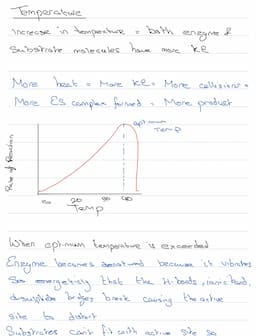 Temperature
Increase in temperature = both enzyme &
Substrate molecules have more KE
More heat = More KE = More collisions =
More ES complex formed = More product
optimum
Temp
Rate of Reaction
20
40
Temp
When optimum temperature is exceeded
Enzyme becomes denatured because it vibrates
so energetically that the H-bonds, ionic bond,
disulphide bridges break causing the active
site to distort
Substrates can't fit with active site so